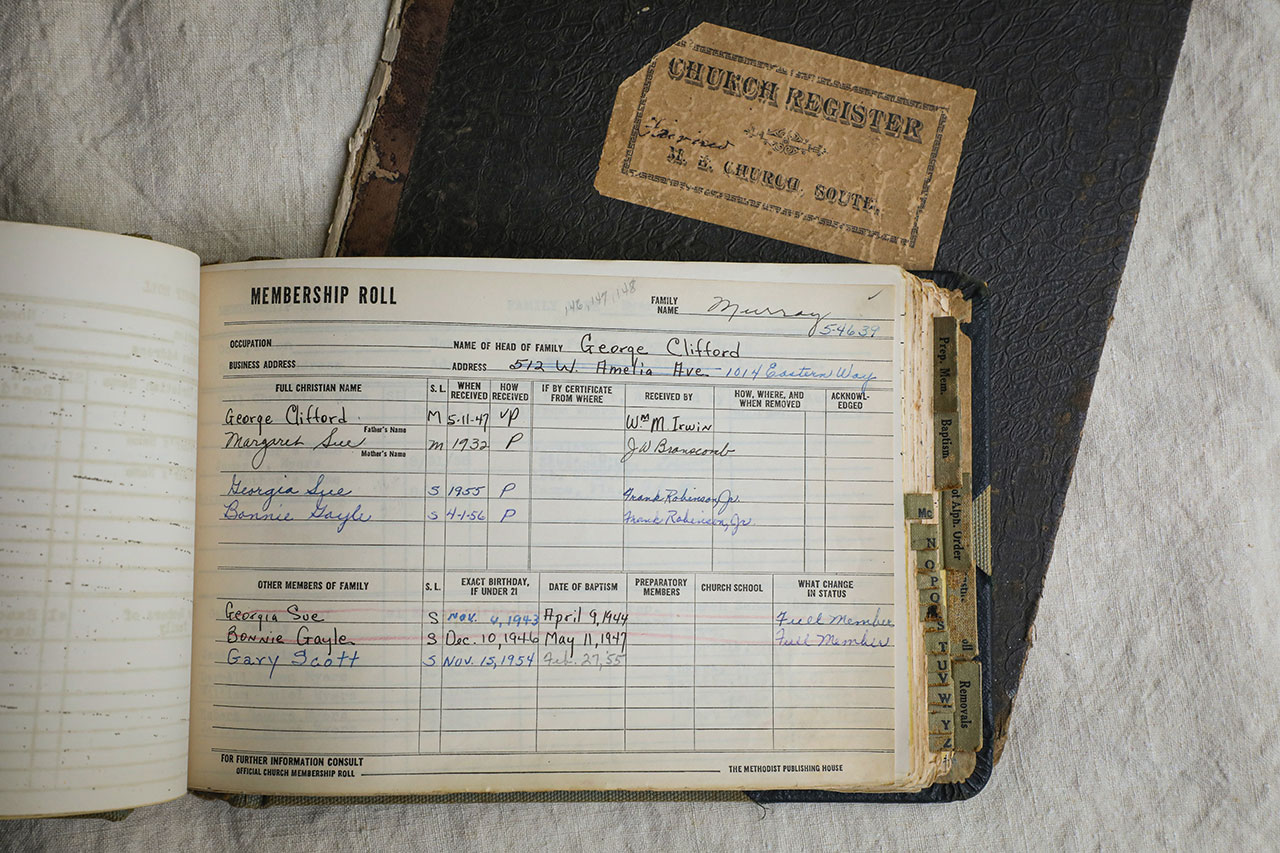 CHURCH REGISTER
M. E. CHURCH, SOUTH.
MEMBERSHIP ROLL
146, 147, 148
FAMILY NAME Murray
5-4639
OCCUPATION NAME OF HEAD OF FAMILY George Clifford
BUSINESS ADDRESS ADDRESS 512 W. Amelia Ave. - 1014 Eastern Way
FULL CHRISTIAN NAME S. L. WHEN RECEIVED HOW RECEIVED IF BY CERTIFICATE FROM WHERE RECEIVED BY HOW, WHERE, AND WHEN REMOVED ACKNOWL-EDGED
George Clifford M 5-11-47 VP Wm M Irwin
Father's Name
Margaret Sue M 1932 P J W Branscomb
Mother's Name
Georgia Sue S 1955 P Frank Robinson, Jr.
Bonnie Gayle S 4-1-56 P Frank Robinson, Jr
OTHER MEMBERS OF FAMILY S. L. EXACT BIRTHDAY, IF UNDER 21 DATE OF BAPTISM PREPARATORY MEMBERS CHURCH SCHOOL WHAT CHANGE IN STATUS
Georgia Sue S Nov. 4, 1943 April 9, 1944 Full Member
Bonnie Gayle S Dec. 10, 1946 May 11, 1947 Full Member
Gary Scott S Nov. 15, 1954 Feb. 27, '55
FOR FURTHER INFORMATION CONSULT
OFFICIAL CHURCH MEMBERSHIP ROLL THE METHODIST PUBLISHING HOUSE
Prep. Mem.
Baptism
of Alph. Order
Removals
Mc
N
O
P
S
T
U V
W
Y
Z